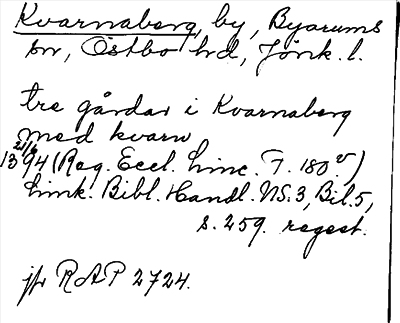 Kvarnaberg, by, Byarums
sn, Östbo hd, Jönk. l.
tre gårdar i Kvarnaberg
med kvarn
21/6
1394 (Reg. Eccl. Linc. F. 180 v)
Link. Bibl. Handl. NS.3, Bil.5,
s. 259. regest.
jfr RAP 2724.